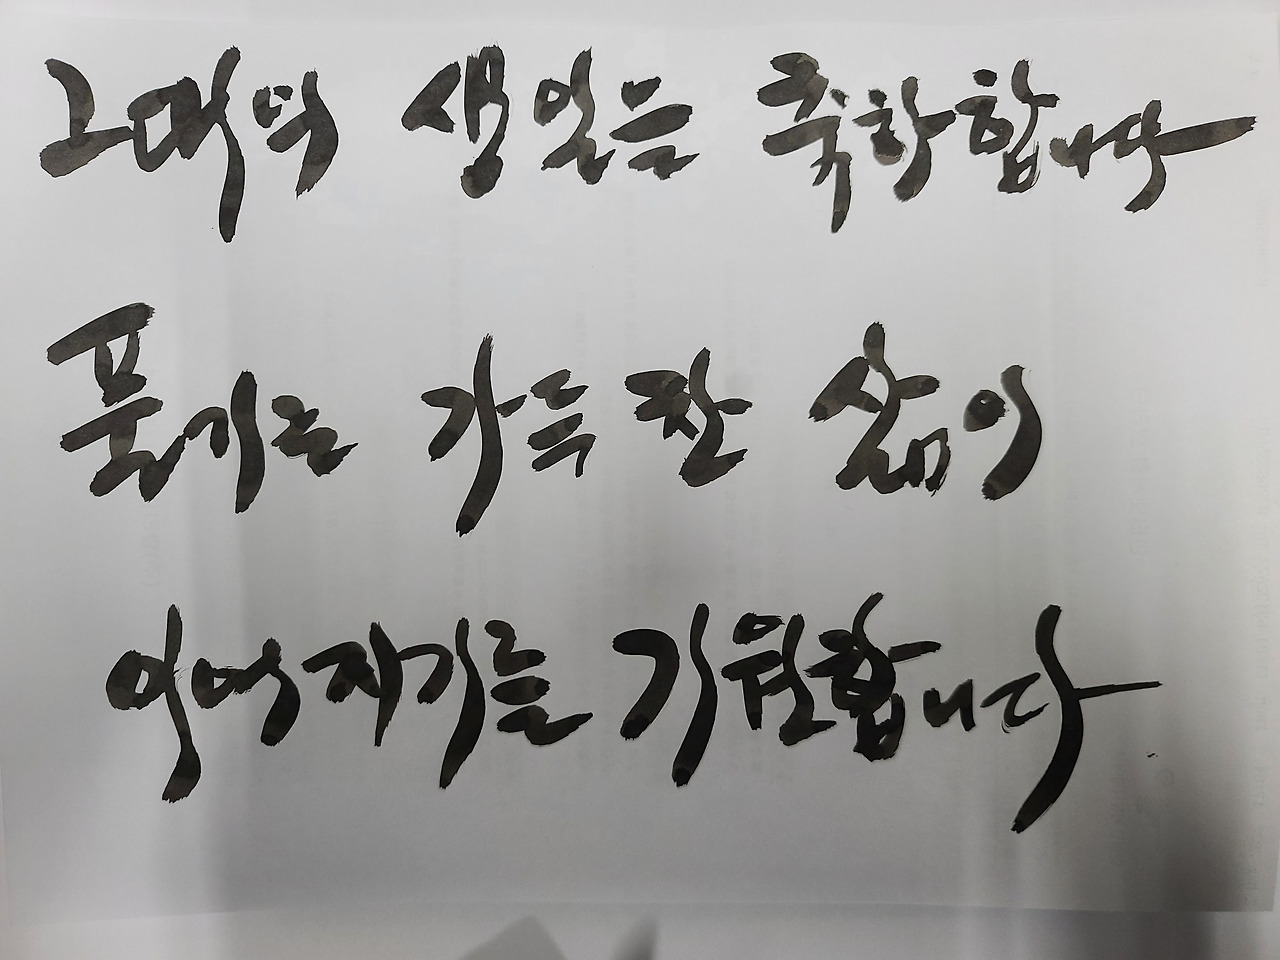 그대의 생일을 축하합니다
가득 찬 삶이
이어지기를 기원합니다